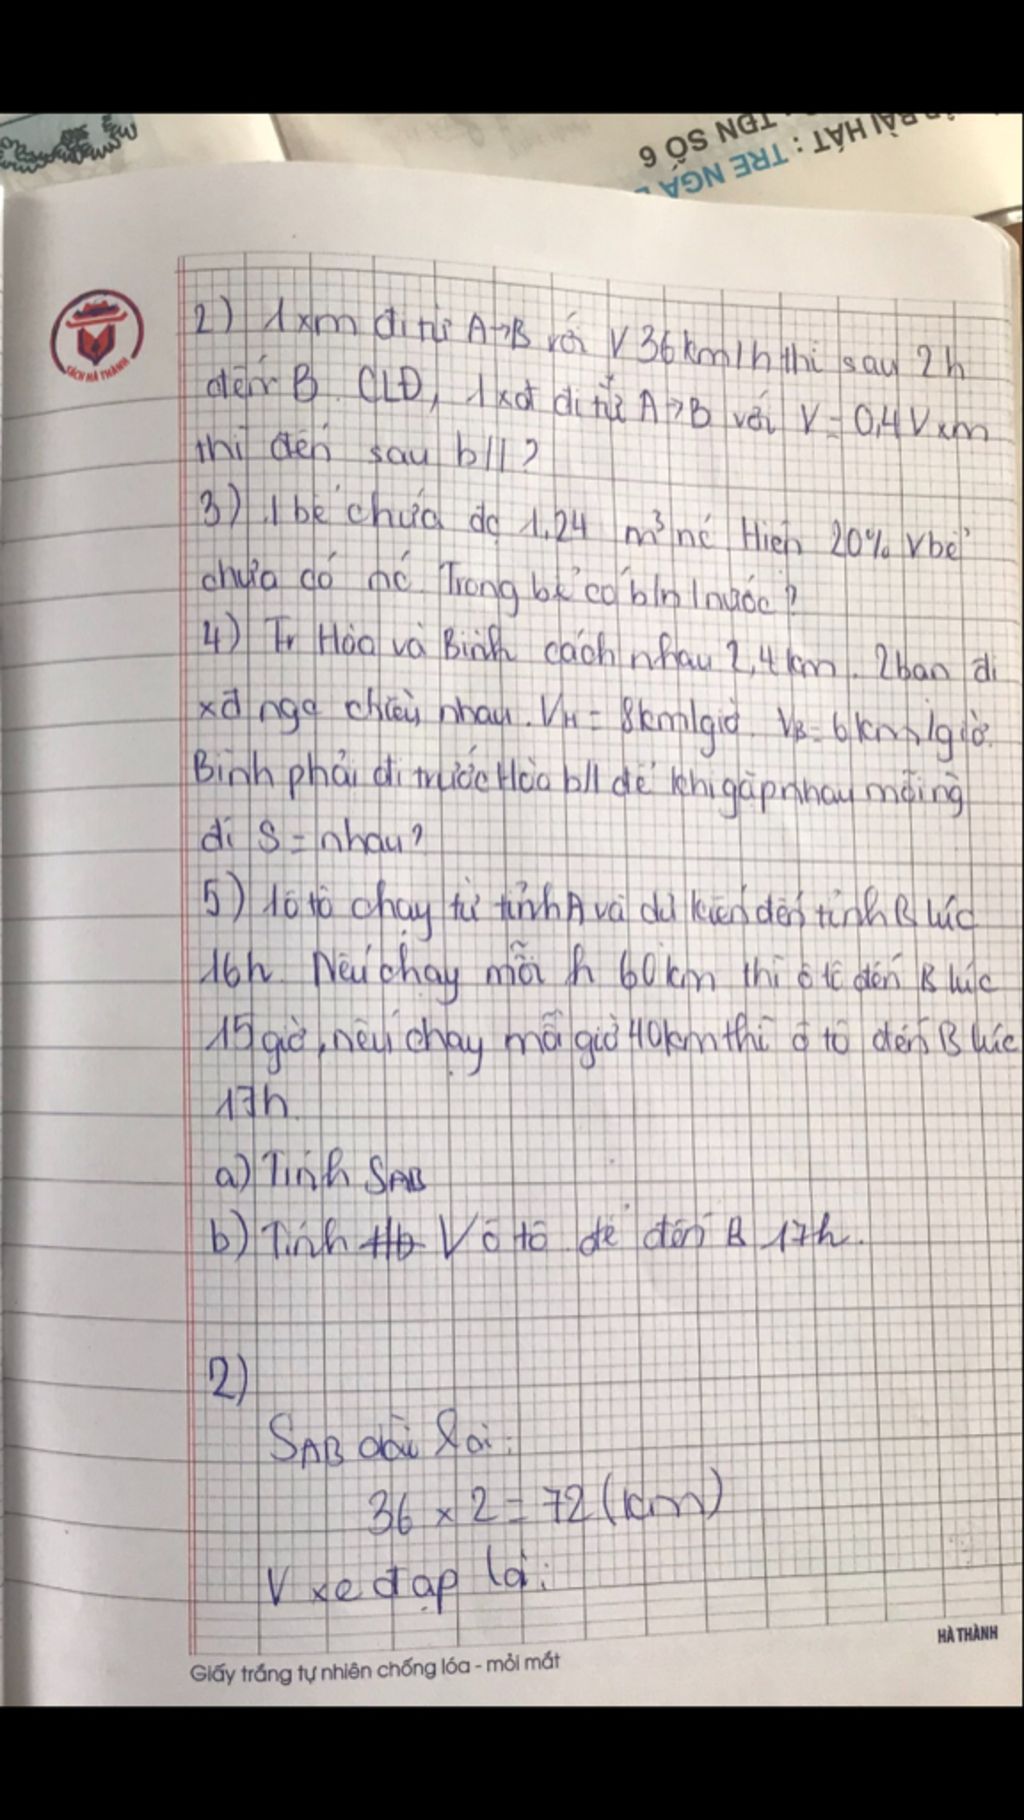 BÀI HÁT : TRE NGÀ
TĐN SỐ 6
SÁCH HÀ THÀNH
2) 1 xm đi từ A→B với V 36km/h thì sau 2h
đến B. CLĐ, 1xđ đi từ A→B với V = 0,4 Vxm
thì đến sau bll?
3) 1 bể chứa đc 1,24 m³ nc Hiện 20% Vbể
chứa có nc. Trong bể có b/n l nước?
4) Tr Hòa và Bình cách nhau 2,4km. 2 bạn đi
xđ ngc chiều nhau. VH = 8km/giờ. VB = 6km/giờ.
Bình phải đi trước Hòa bll để khi gặp nhau mỗi ng
đi S = nhau?
5) 1ô tô chạy từ tỉnh A và dự kiến đến tỉnh B lúc
16h. Nếu chạy mỗi h 60km thì ô tô đến B lúc
15giờ, nếu chạy mỗi giờ 40km thì ô tô đến B lúc
17h.
a) Tính SAB
b) Tính V ô tô để đến B 17h.
2)
SAB dài là:
36 x 2 = 72 (km)
V xe đạp là:
HÀ THÀNH
Giấy trắng tự nhiên chống lóa - mỏi mắt